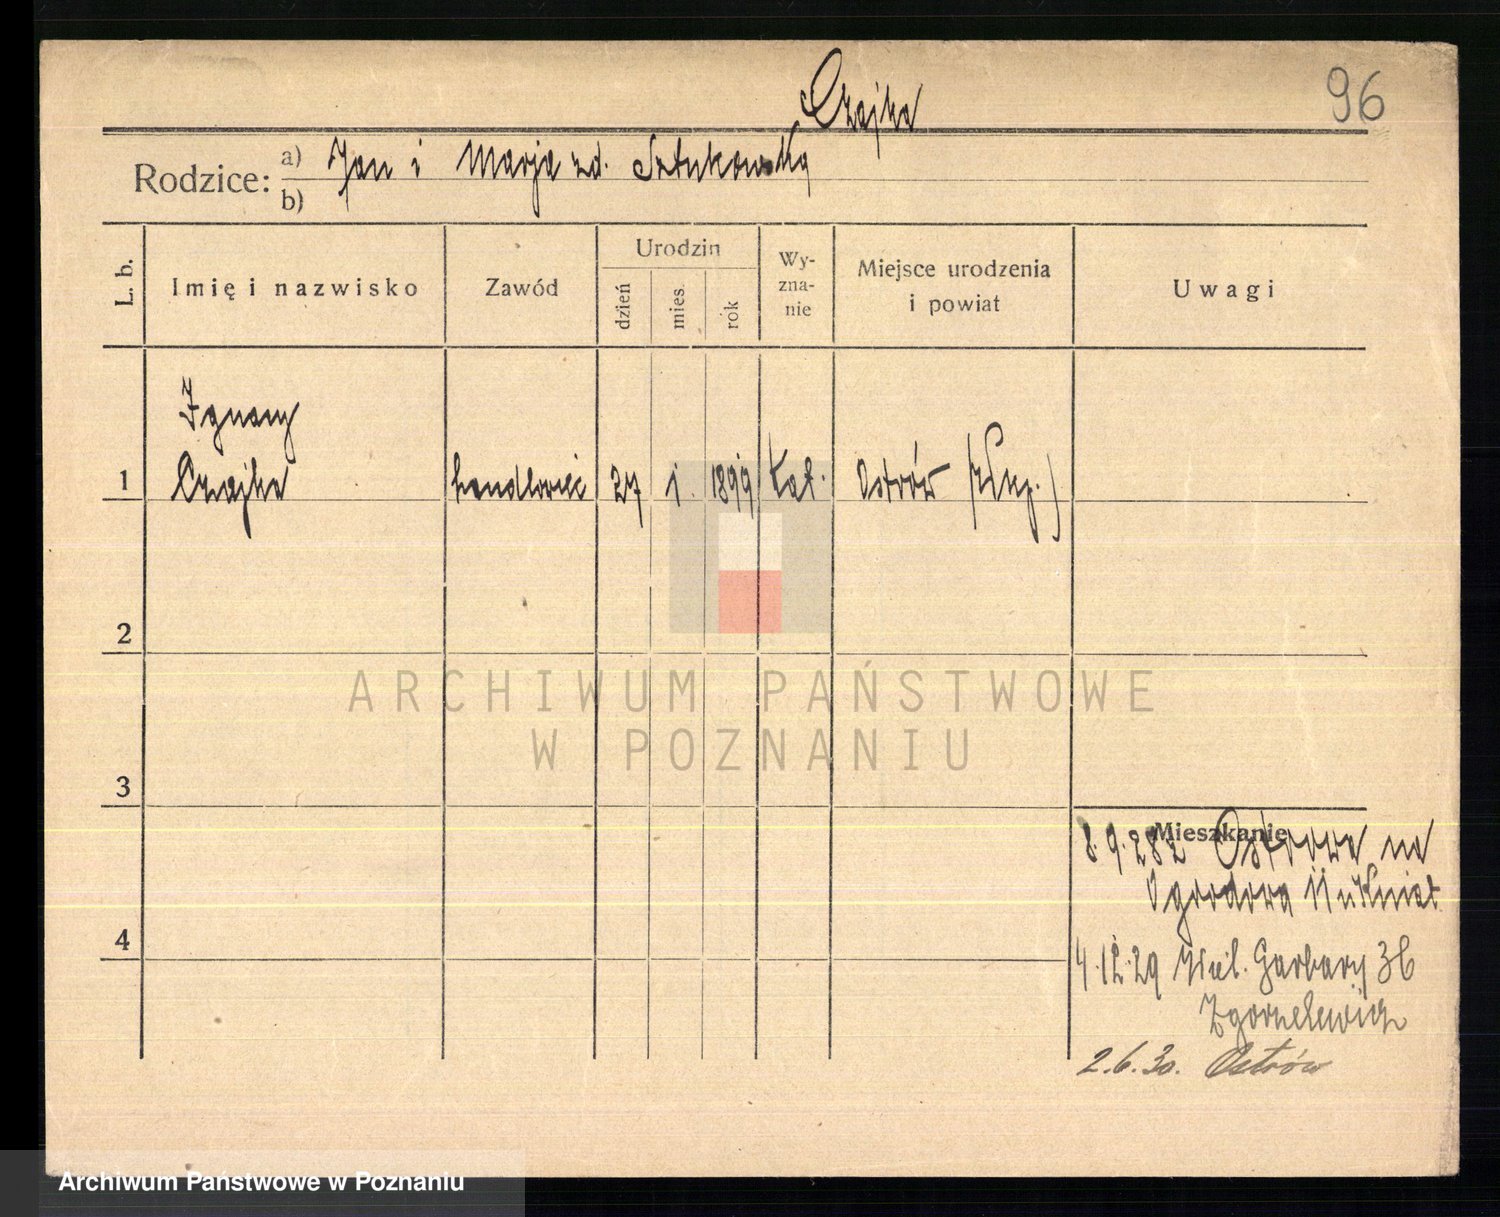 Czajka
96
Rodzice: a) Jan i Marja zd. Sztukowska
b)
L. b. Imię i nazwisko Zawód Urodzin dzień mies. rok Wy-zna-nie Miejsce urodzenia i powiat Uwagi
Ignacy
1 Czajka handlowiec 27 1. 1899 kat. Ostrów
2
ARCHIWUM PAŃSTWOWE
W POZNANIU
3
Mieszkanie
8.9.282 Ostrowa na
Ogrodowa 11 u
4
4.12.29 Wiel. Garbary 36
2.6.30. Ostrów
Archiwum Państwowe w Poznaniu